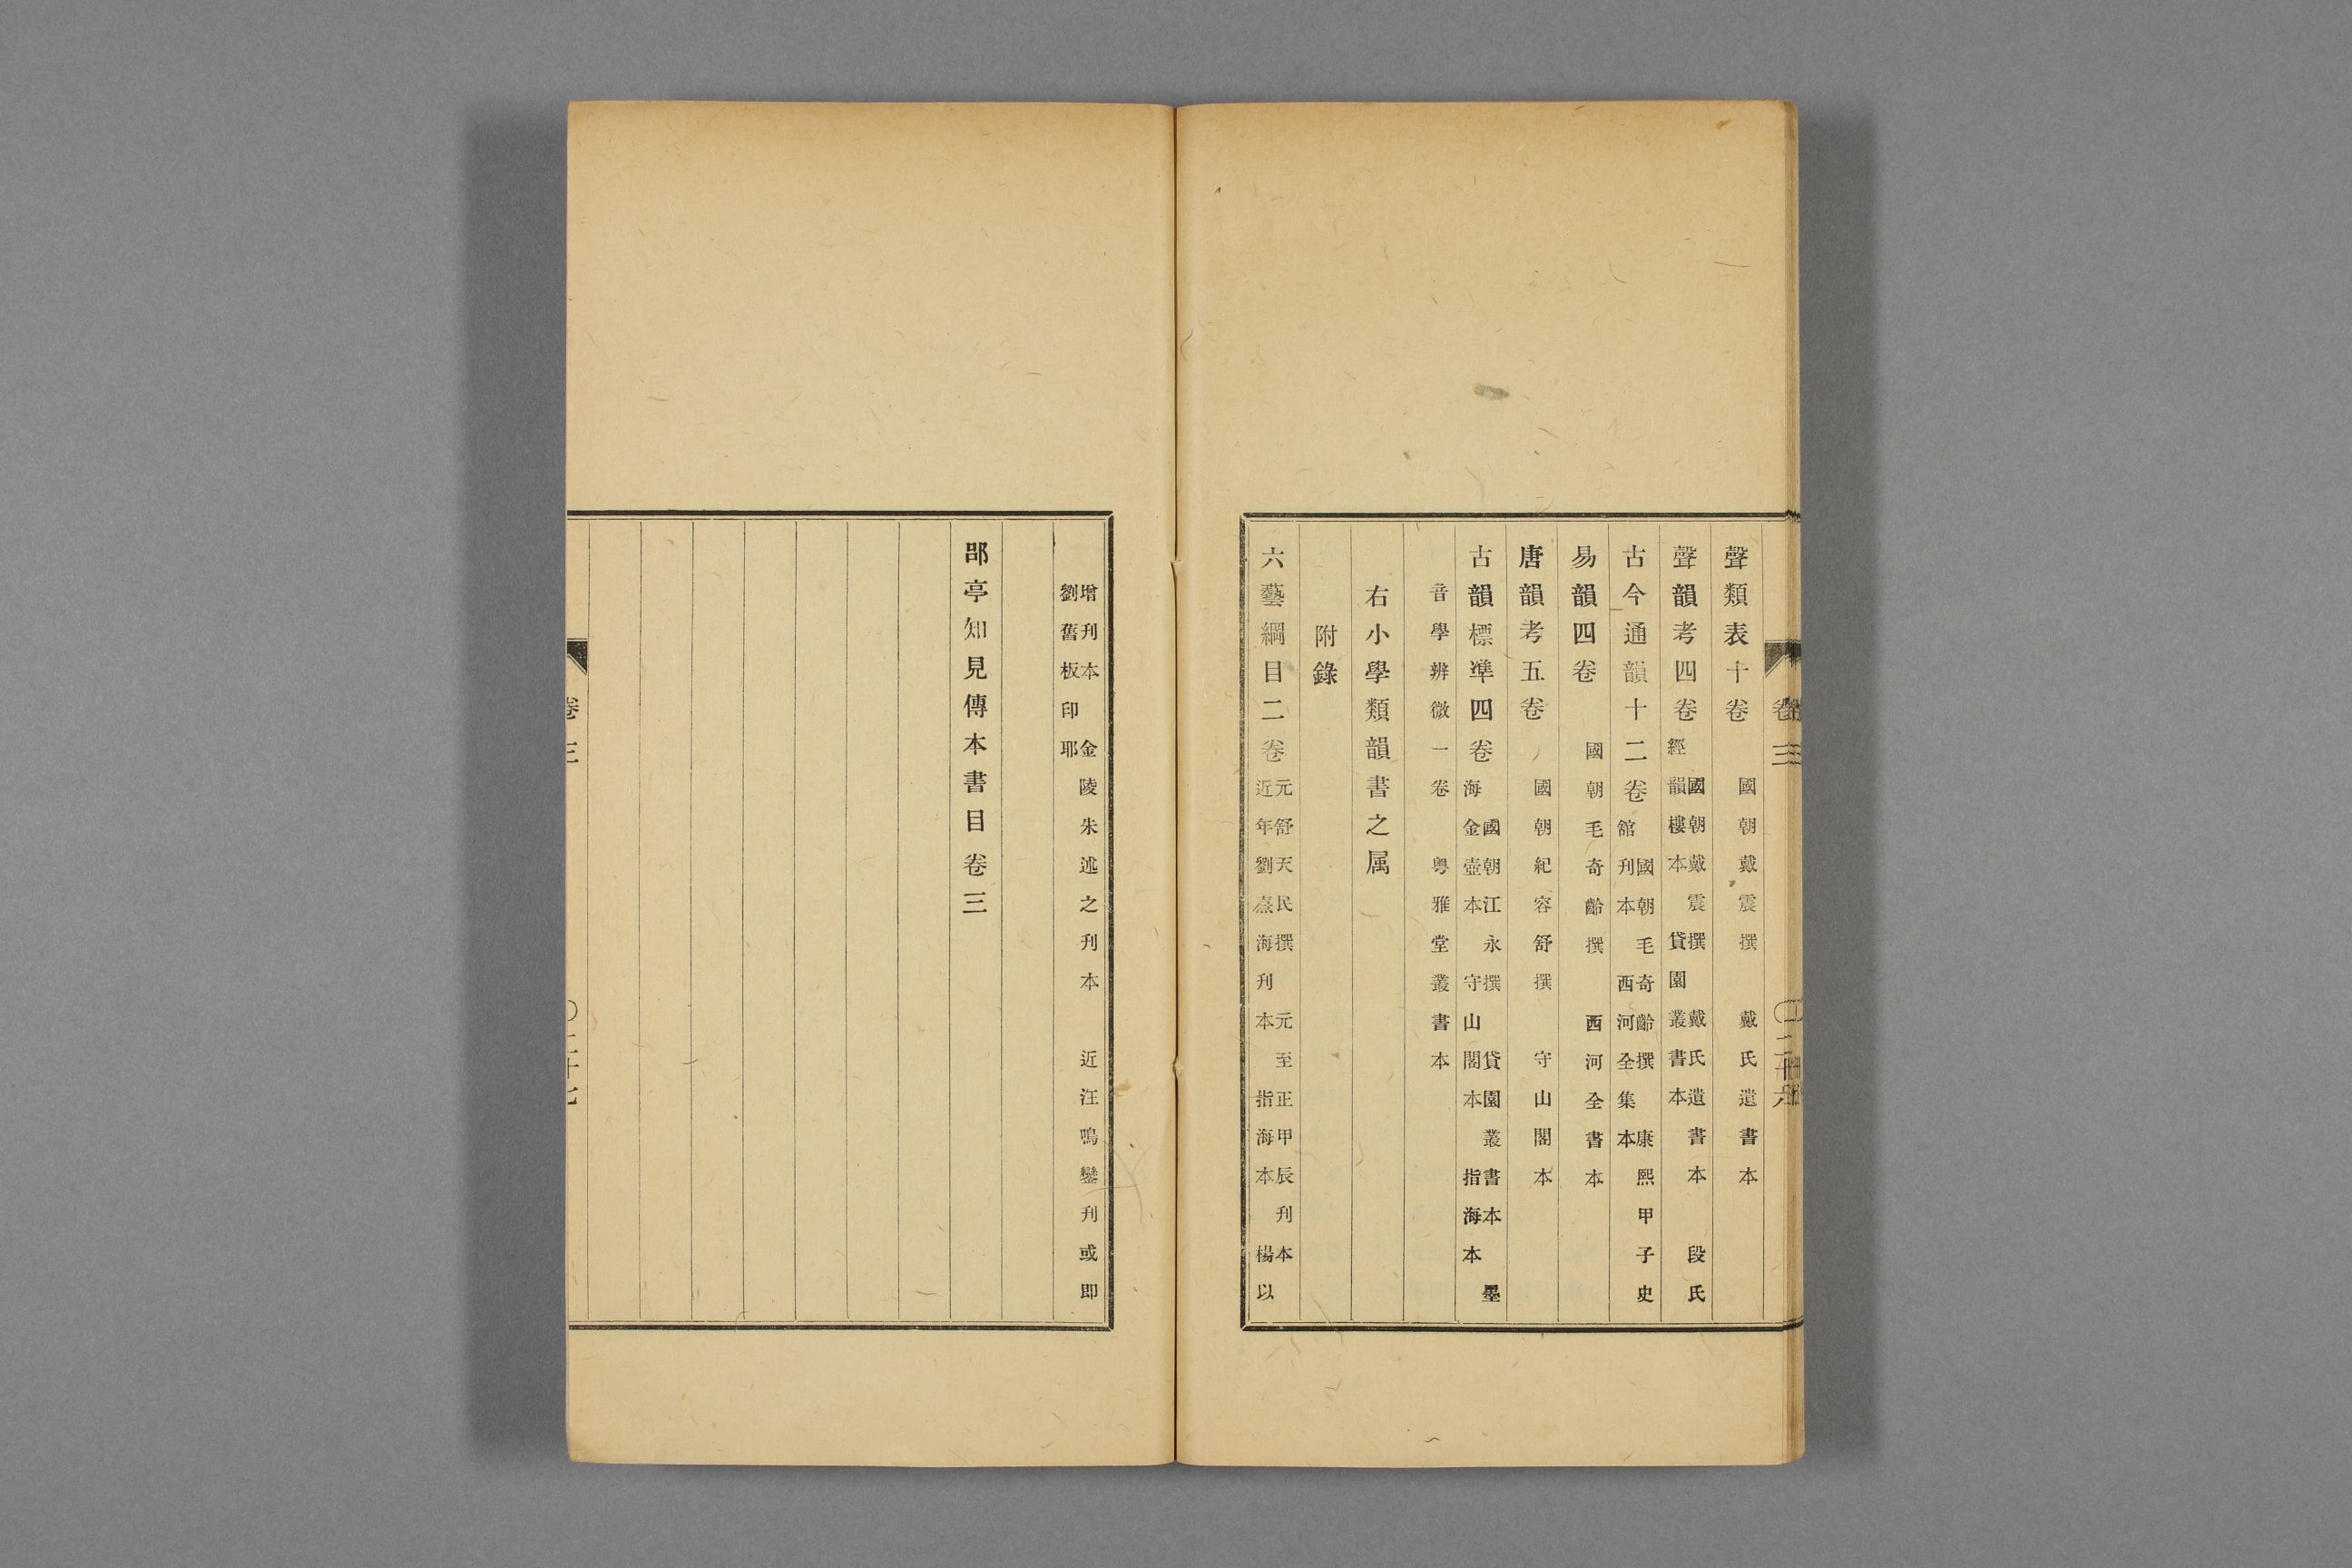 卷三 〇二十六
聲類表十卷 國朝戴震撰 戴氏遺書本
聲韻考四卷 國朝戴震撰 戴氏遺書本 段氏
經韻樓本 貸園叢書本
古今通韻十二卷 國朝毛奇齡撰 康熙甲子史
館刊本 西河全集本
易韻四卷 國朝毛奇齡撰 西河全書本
唐韻考五卷 國朝紀容舒撰 守山閣本
古韻標準四卷 國朝江永撰 貸園叢書本 墨
海金壺本 守山閣本 指海本
音學辨微一卷 粵雅堂叢書本
右小學類韻書之属
附錄
六藝綱目二卷 元舒天民撰 元至正甲辰刊本
近年劉熹海刊本 指海本 楊以
增刊本 金陵朱述之刊本 近汪鳴鑾刊或即
劉舊板印耶
郘亭知見傳本書目卷三
卷三 〇二十七